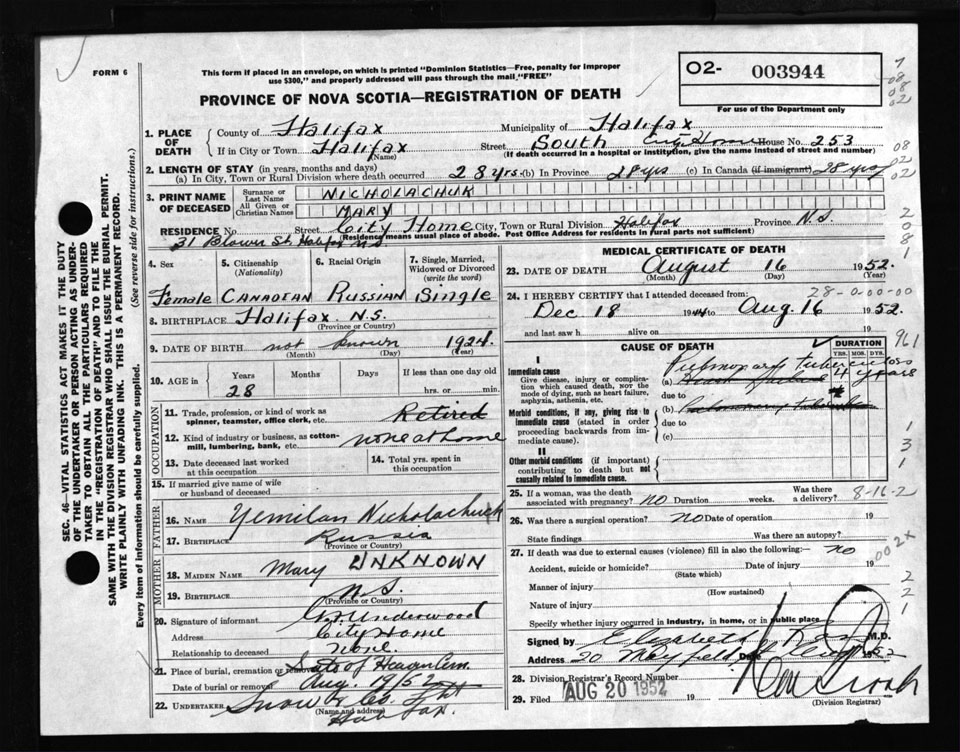 FORM 6
This form if placed in an envelope, on which is printed "Dominion Statistics—Free, penalty for improper
use $300," and properly addressed will pass through the mail "FREE"
O2- 003944
For use of the Department only
PROVINCE OF NOVA SCOTIA—REGISTRATION OF DEATH
1. PLACE OF DEATH
County of Halifax Municipality of Halifax
If in City or Town Halifax (Name) Street South City Home House No. 253
(If death occurred in a hospital or institution, give the name instead of street and number)
2. LENGTH OF STAY (in years, months and days)
(a) In City, Town or Rural Division where death occurred 28 yrs. (b) In Province 28 yrs (c) In Canada (if immigrant) 28 yrs
3. PRINT NAME OF DECEASED
Surname or Last Name NICHOLACHUK
All Given or Christian Names MARY
RESIDENCE No. Street City Home City, Town or Rural Division Halifax Province N.S.
31 Blower St. Halifax NS
(Residence means usual place of abode. Post Office Address for residents in rural parts not sufficient)
4. Sex
5. Citizenship (Nationality)
6. Racial Origin
7. Single, Married, Widowed or Divorced (write the word)
Female CANADIAN RUSSIAN Single
8. BIRTHPLACE Halifax N.S.
(Province or Country)
9. DATE OF BIRTH not known 1924
(Month) (Day) (Year)
10. AGE in Years Months Days If less than one day
28 hrs. or min.
OCCUPATION
11. Trade, profession, or kind of work as spinner, teamster, office clerk, etc. Retired
12. Kind of industry or business, as cotton-mill, lumbering, bank, etc. none at home
13. Date deceased last worked at this occupation
14. Total yrs. spent in this occupation
15. If married give name of wife or husband of deceased
FATHER
16. NAME Yemilan Nicholachuk
17. BIRTHPLACE Russia
(Province or Country)
MOTHER
18. MAIDEN NAME Mary UNKNOWN
19. BIRTHPLACE N.S.
(Province or Country)
20. Signature of informant Underwood
Address City Home
Relationship to deceased None.
21. Place of burial, cremation or removal Gate of Heaven Cem.
Date of burial or removal Aug. 19/52
22. UNDERTAKER Snow & Co.
(Name and address)
Halifax.
MEDICAL CERTIFICATE OF DEATH
23. DATE OF DEATH August 16 1952.
(Month) (Day) (Year)
28-0-00-00
24. I HEREBY CERTIFY that I attended deceased from
Dec 18 1944 to Aug. 16 1952.
and last saw h alive on 19
961
CAUSE OF DEATH
DURATION
YRS. MOS. DYS.
I
Immediate cause
Give disease, injury or complication which caused death, not the mode of dying, such as heart failure, asphyxia, asthenia, etc.
Pulmonary tuberculosis 4 years
(a)
due to
Morbid conditions, if any, giving rise to immediate cause (stated in order proceeding backwards from immediate cause).
(b) Pulmonary tuberculosis
due to
(c)
II
Other morbid conditions (if important) contributing to death but not causally related to immediate cause.
25. If a woman, was the death associated with pregnancy? no Duration weeks. Was there a delivery?
8-16-2
26. Was there a surgical operation? no Date of operation 19
State findings Was there an autopsy?
27. If death was due to external causes (violence) fill in also the following:— no
Accident, suicide or homicide? Date of injury 19
(State which)
Manner of injury
(How sustained)
Nature of injury
Specify whether injury occurred in industry, in home, or in public place
Signed by Elizabeth M.D.
Address 20 Mayfield Date 1952
28. Division Registrar's Record Number
29. Filed AUG 20 1952
(Division Registrar)
SEC. 46—VITAL STATISTICS ACT MAKES IT THE DUTY
OF THE UNDERTAKER OR PERSON ACTING AS UNDER-
TAKER TO OBTAIN ALL THE PARTICULARS REQUIRED
IN THE "REGISTRATION OF DEATH" AND TO FILE THE
SAME WITH THE DIVISION REGISTRAR WHO SHALL ISSUE THE BURIAL PERMIT.
WRITE PLAINLY WITH UNFADING INK. THIS IS A PERMANENT RECORD.
Every item of information should be carefully supplied. (See reverse side for instructions.)